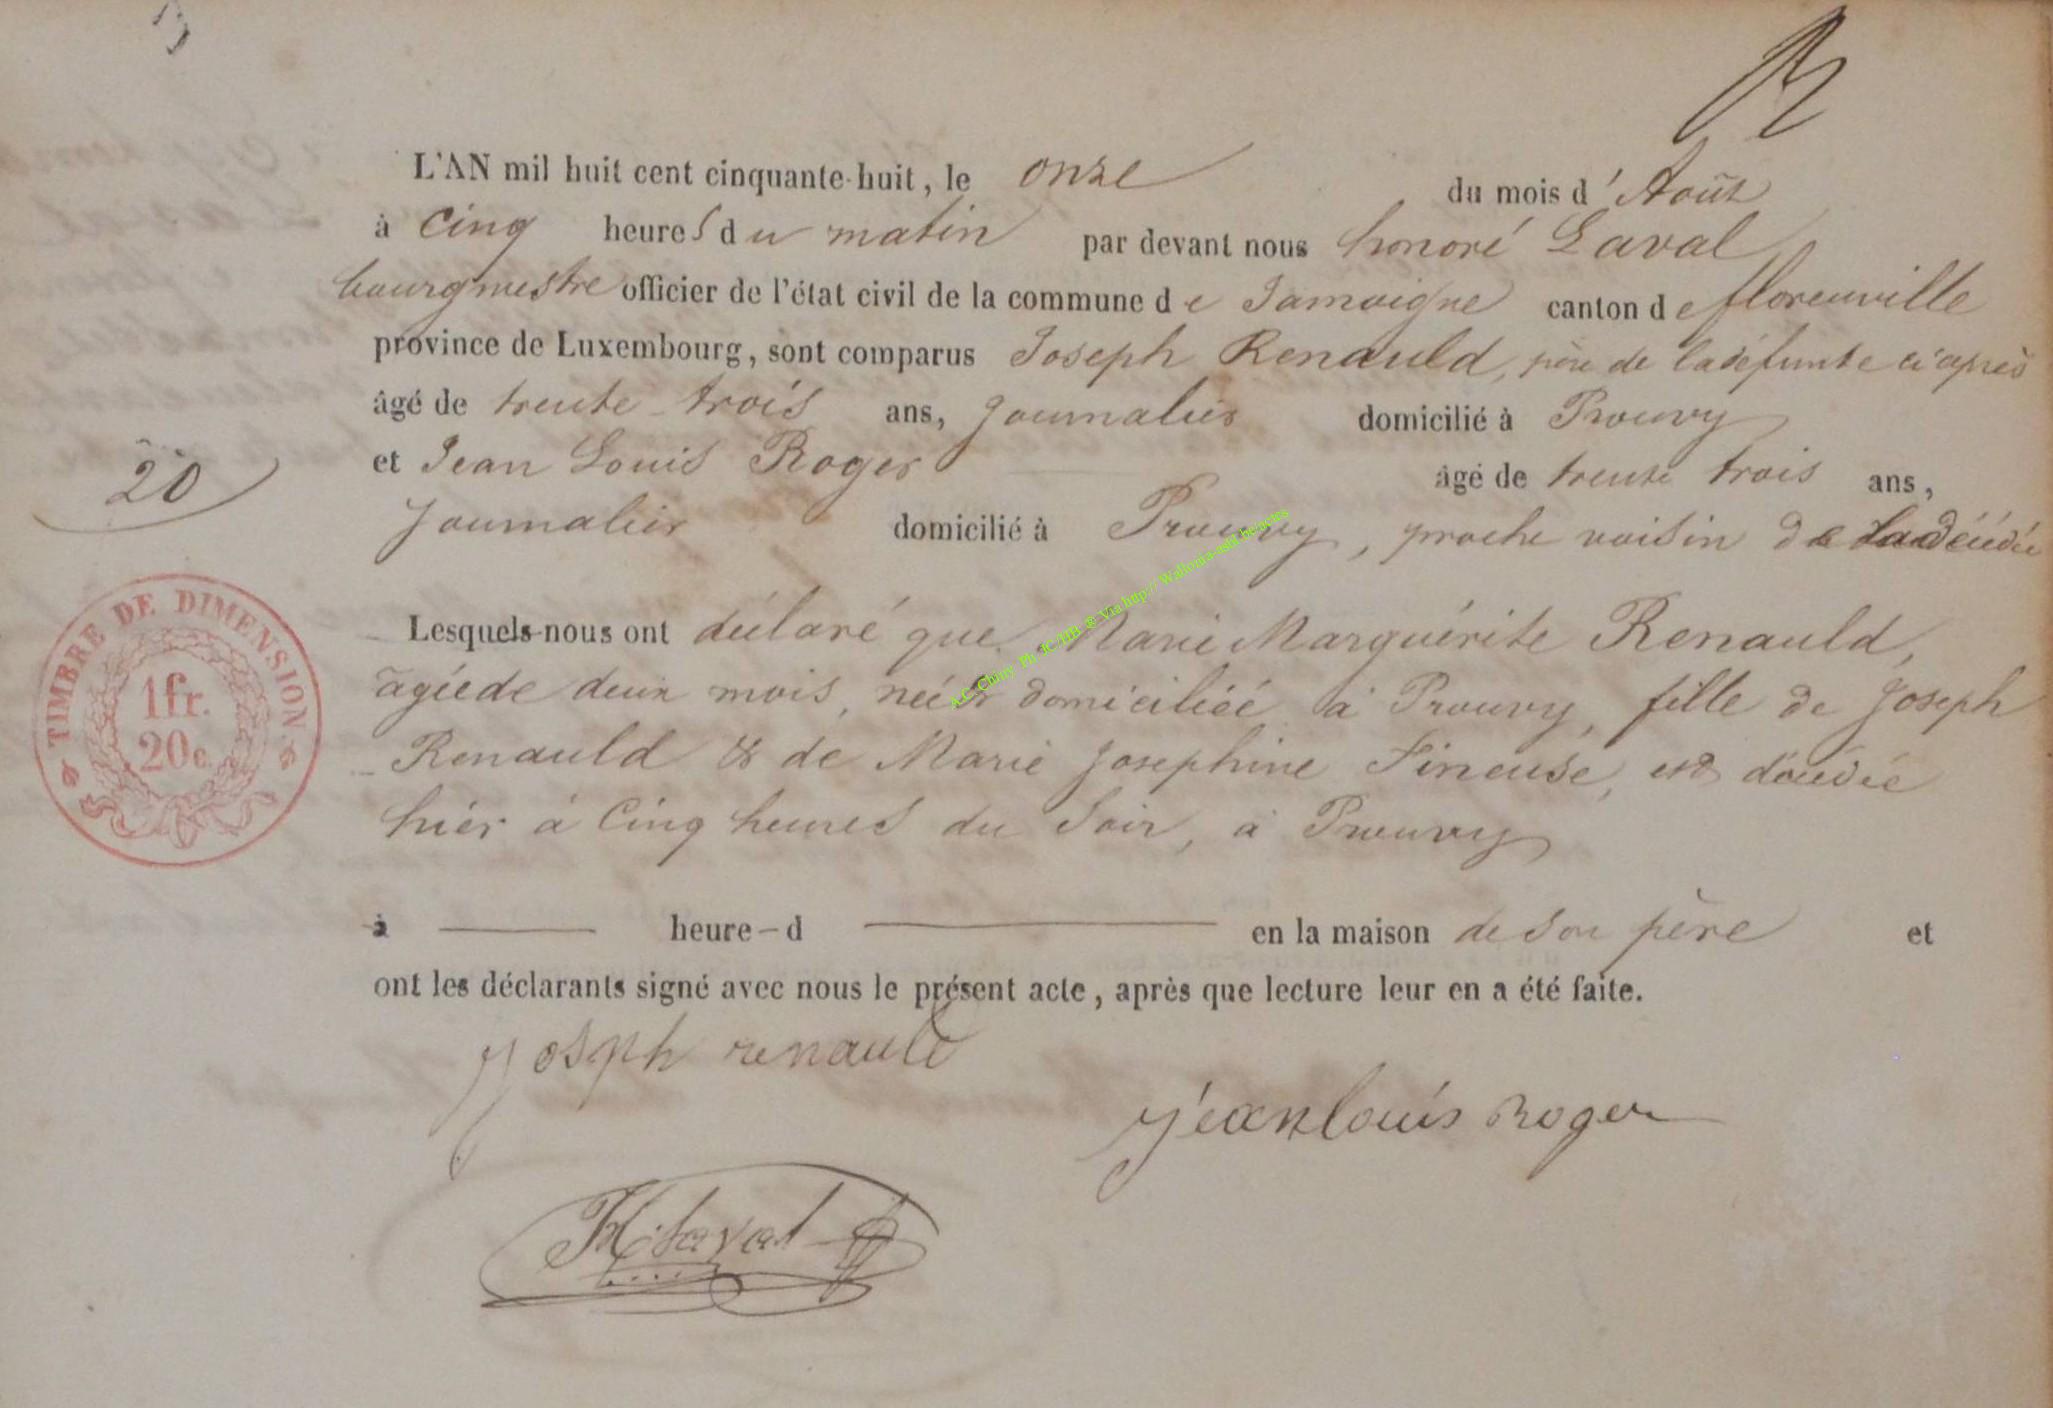 L'AN mil huit cent cinquante-huit, le onze du mois d'Août
à cinq heures du matin par devant nous honoré Laval
bourgmestre officier de l'état civil de la commune de Jamoigne canton de florenville
province de Luxembourg, sont comparus Joseph Renauld, père de la défunte ci après
âgé de trente-trois ans, Journalier domicilié à Prouvy
et Jean Louis Roger âgé de trente trois ans,
20
Journalier domicilié à Prouvy, proche voisin de la décédée
Lesquels nous ont déclaré que Marie Marguérite Renauld,
âgée de deux mois, née & domiciliée à Prouvy, fille de Joseph
Renauld & de Marie Josephine Fineuse, est décédée
hier à cinq heures du soir, à Prouvy
à heure d en la maison de son père et
ont les déclarants signé avec nous le présent acte, après que lecture leur en a été faite.
Josph renauld
jeanlouis Roger
H. Laval
TIMBRE DE DIMENSION.
1fr.
20c.
A.C. Chiny Ph. JC/HB ® Via http:// Wallonia-asbl.be/actes